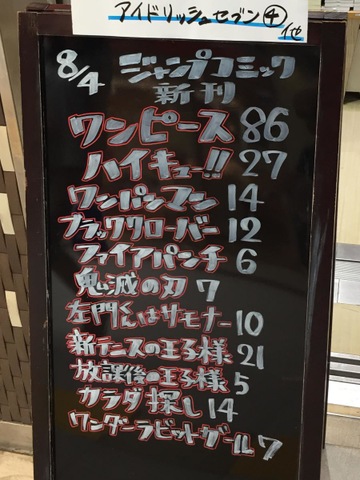 アイドリッシュセブン④
他
8/4 ジャンプコミック
新刊
ワンピース 86
ハイキュー!! 27
ワンパンマン 14
ブラッククローバー 12
ファイアパンチ 6
鬼滅の刃 7
左門くんはサモナー 10
新テニスの王子様 21
放課後の王子様 5
カラダ探し 14
ワンダーラビットガール 7